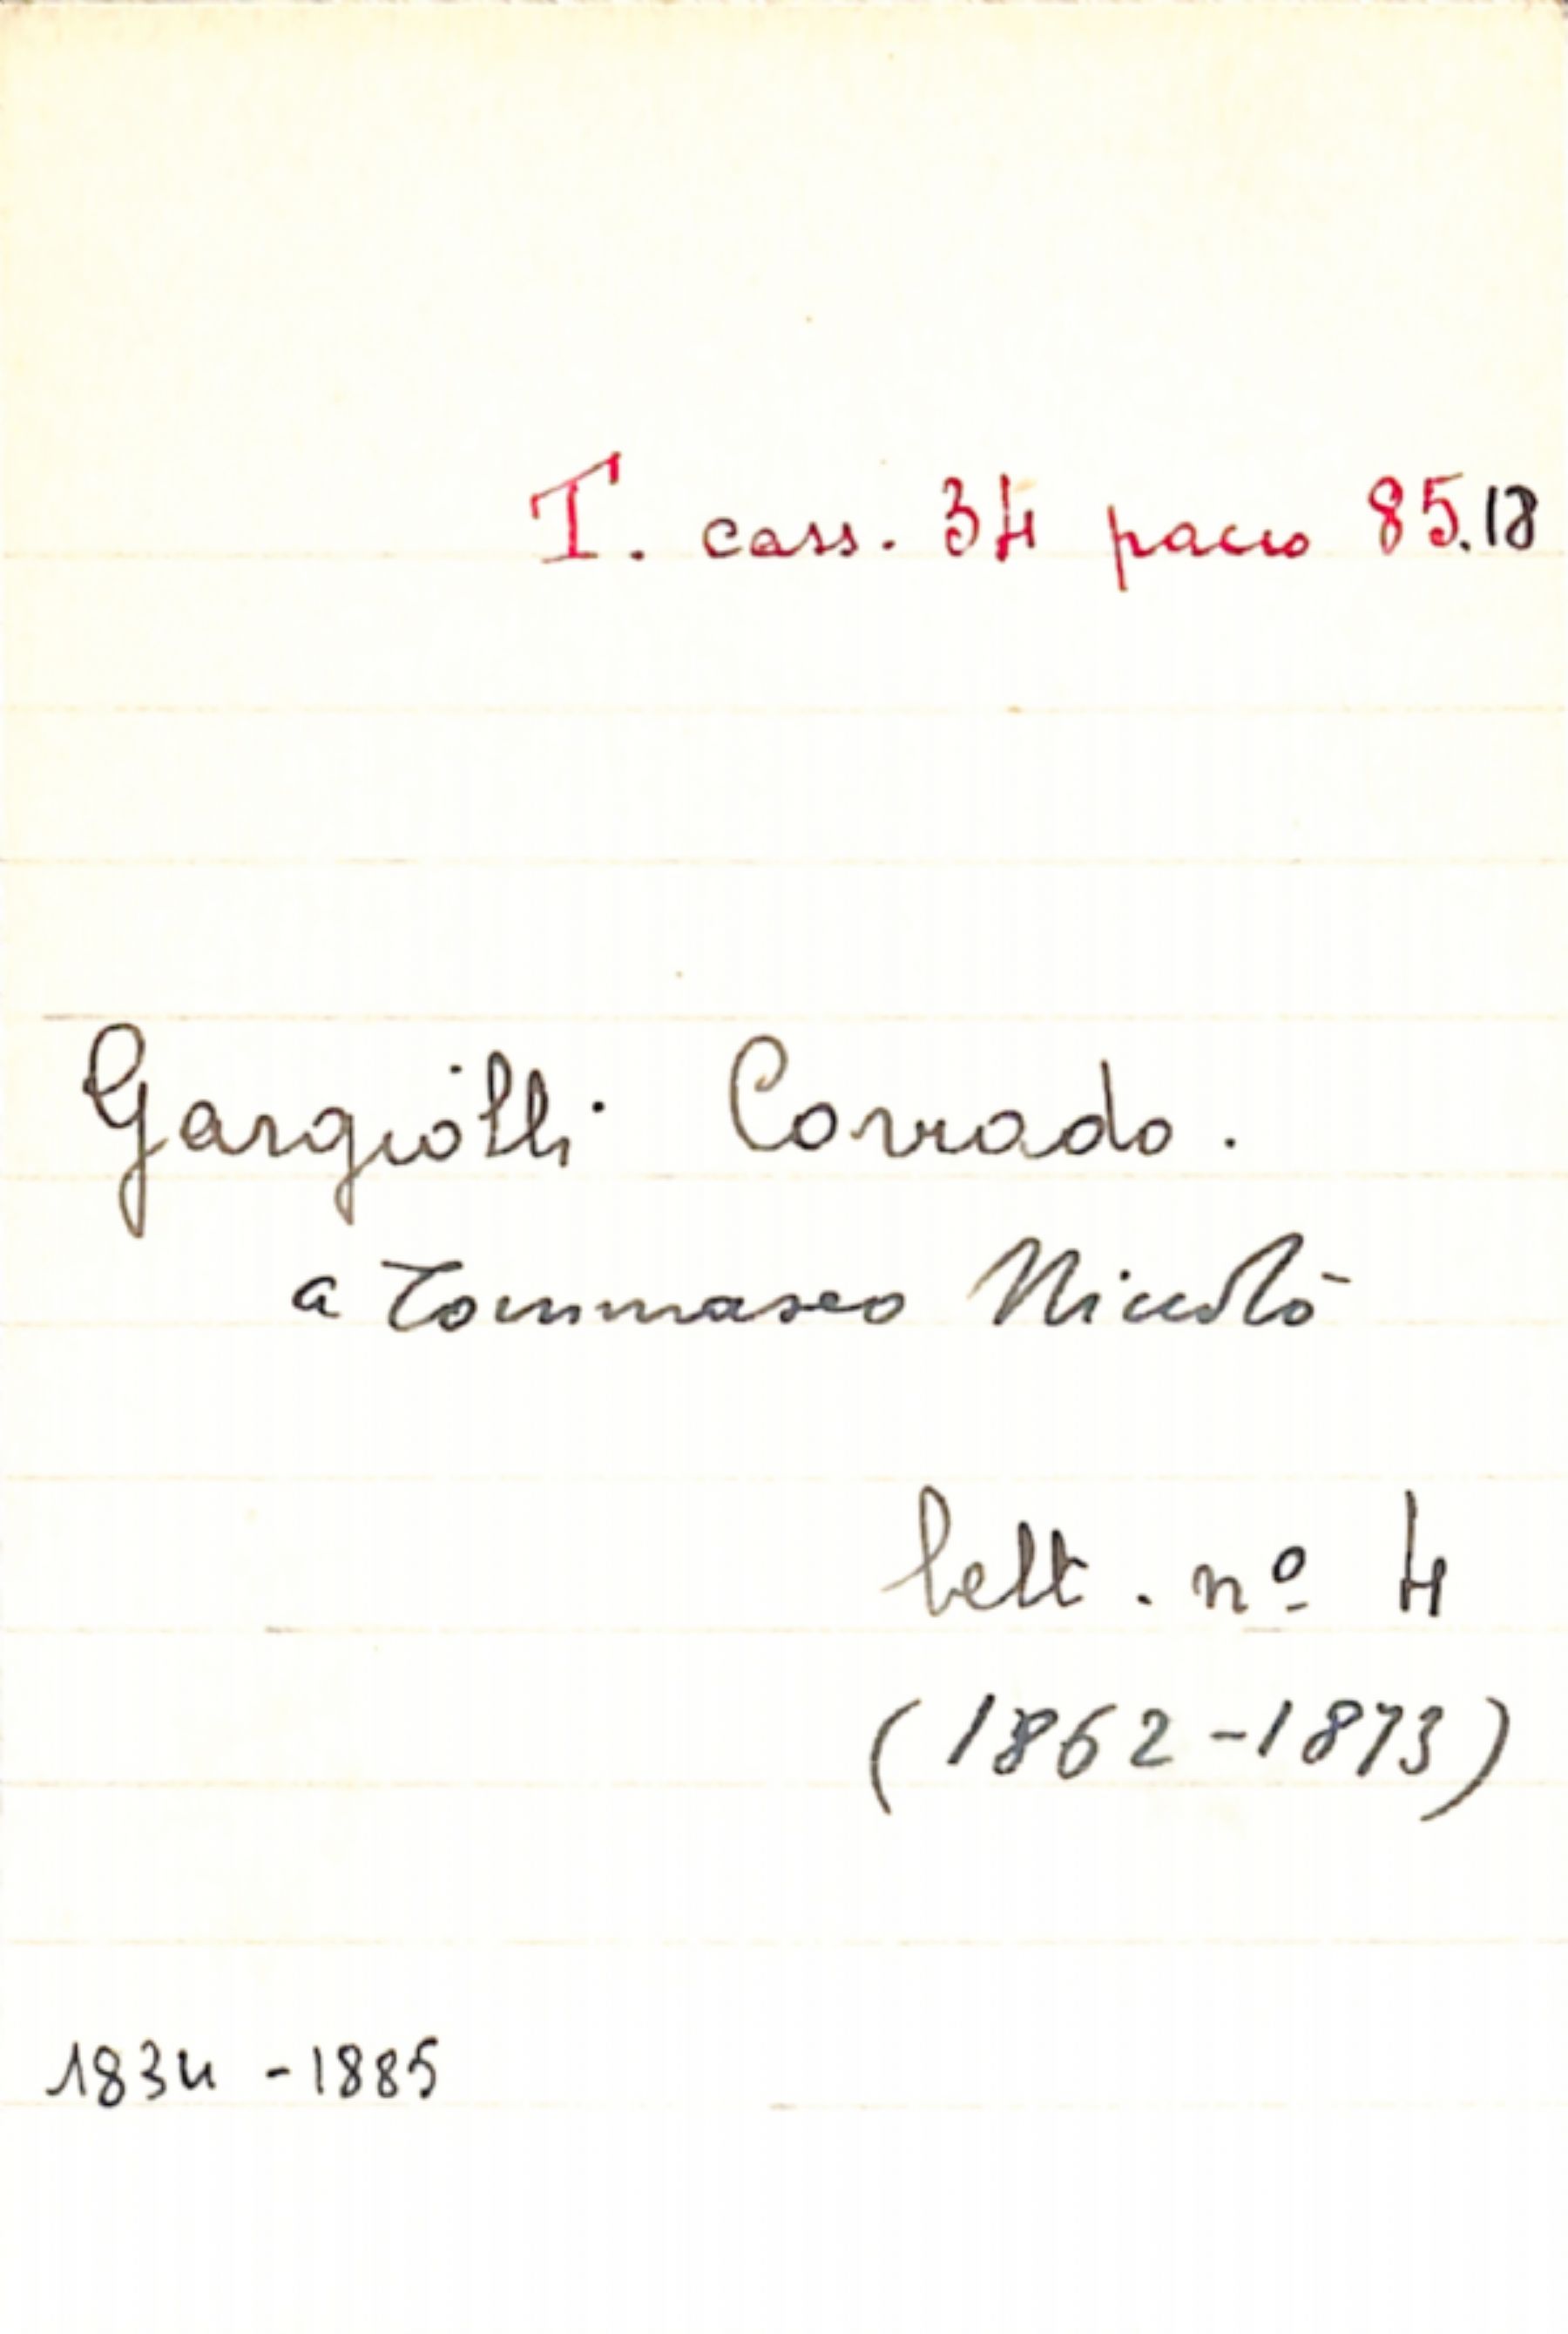 T. cass. 34 pacco 85.18
Gargiolli Corrado.
a Tommaseo Niccolò
lett. nº 4
(1862-1873)
1834 -1885